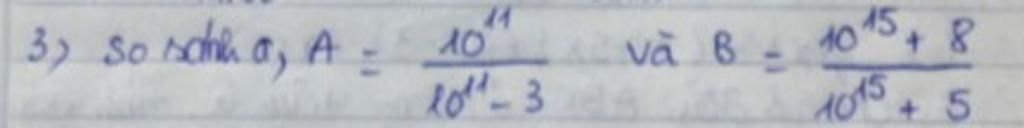 3) so sánh a, A = \frac{10^{11}}{10^{11} - 3} và B = \frac{10^{15} + 8}{10^{15} + 5}